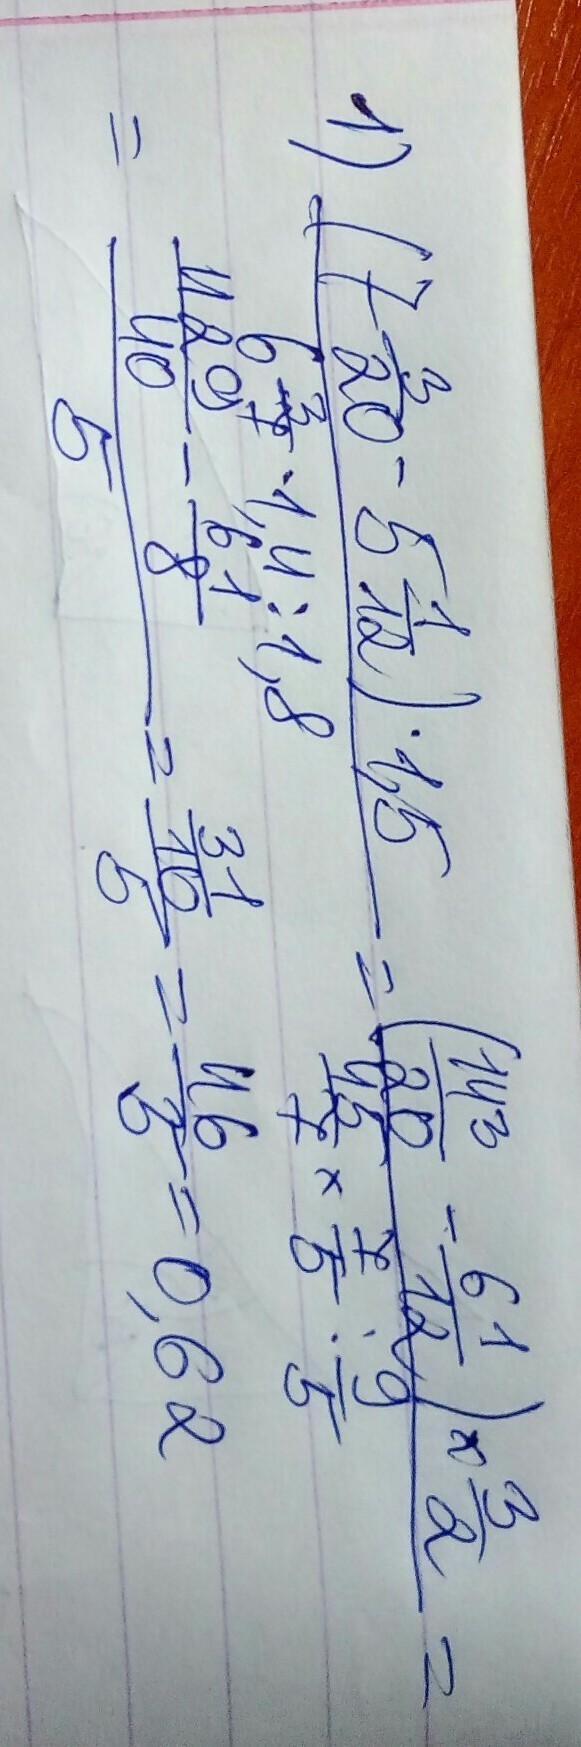 1) (7 3/20 - 5 1/12) · 1,5 / 6 3/7 · 1,4 : 1,8 = (143/20 - 61/12) × 3/2 / 45/7 × 7/5 : 9/5 =
= 429/40 - 61/8 / 5 = 31/10 / 5 = 46/5 = 0,62